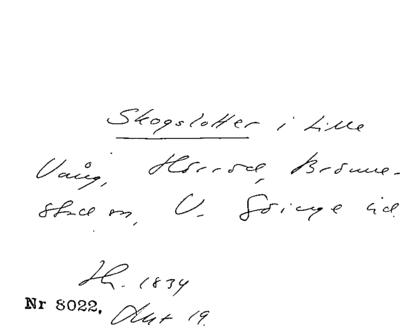 Skogslotter i Lille
Vång, Hörröd, Brönne-
stad sn, V. Göinge hd.
Th. 1834
Nr 8022, Akt 19.